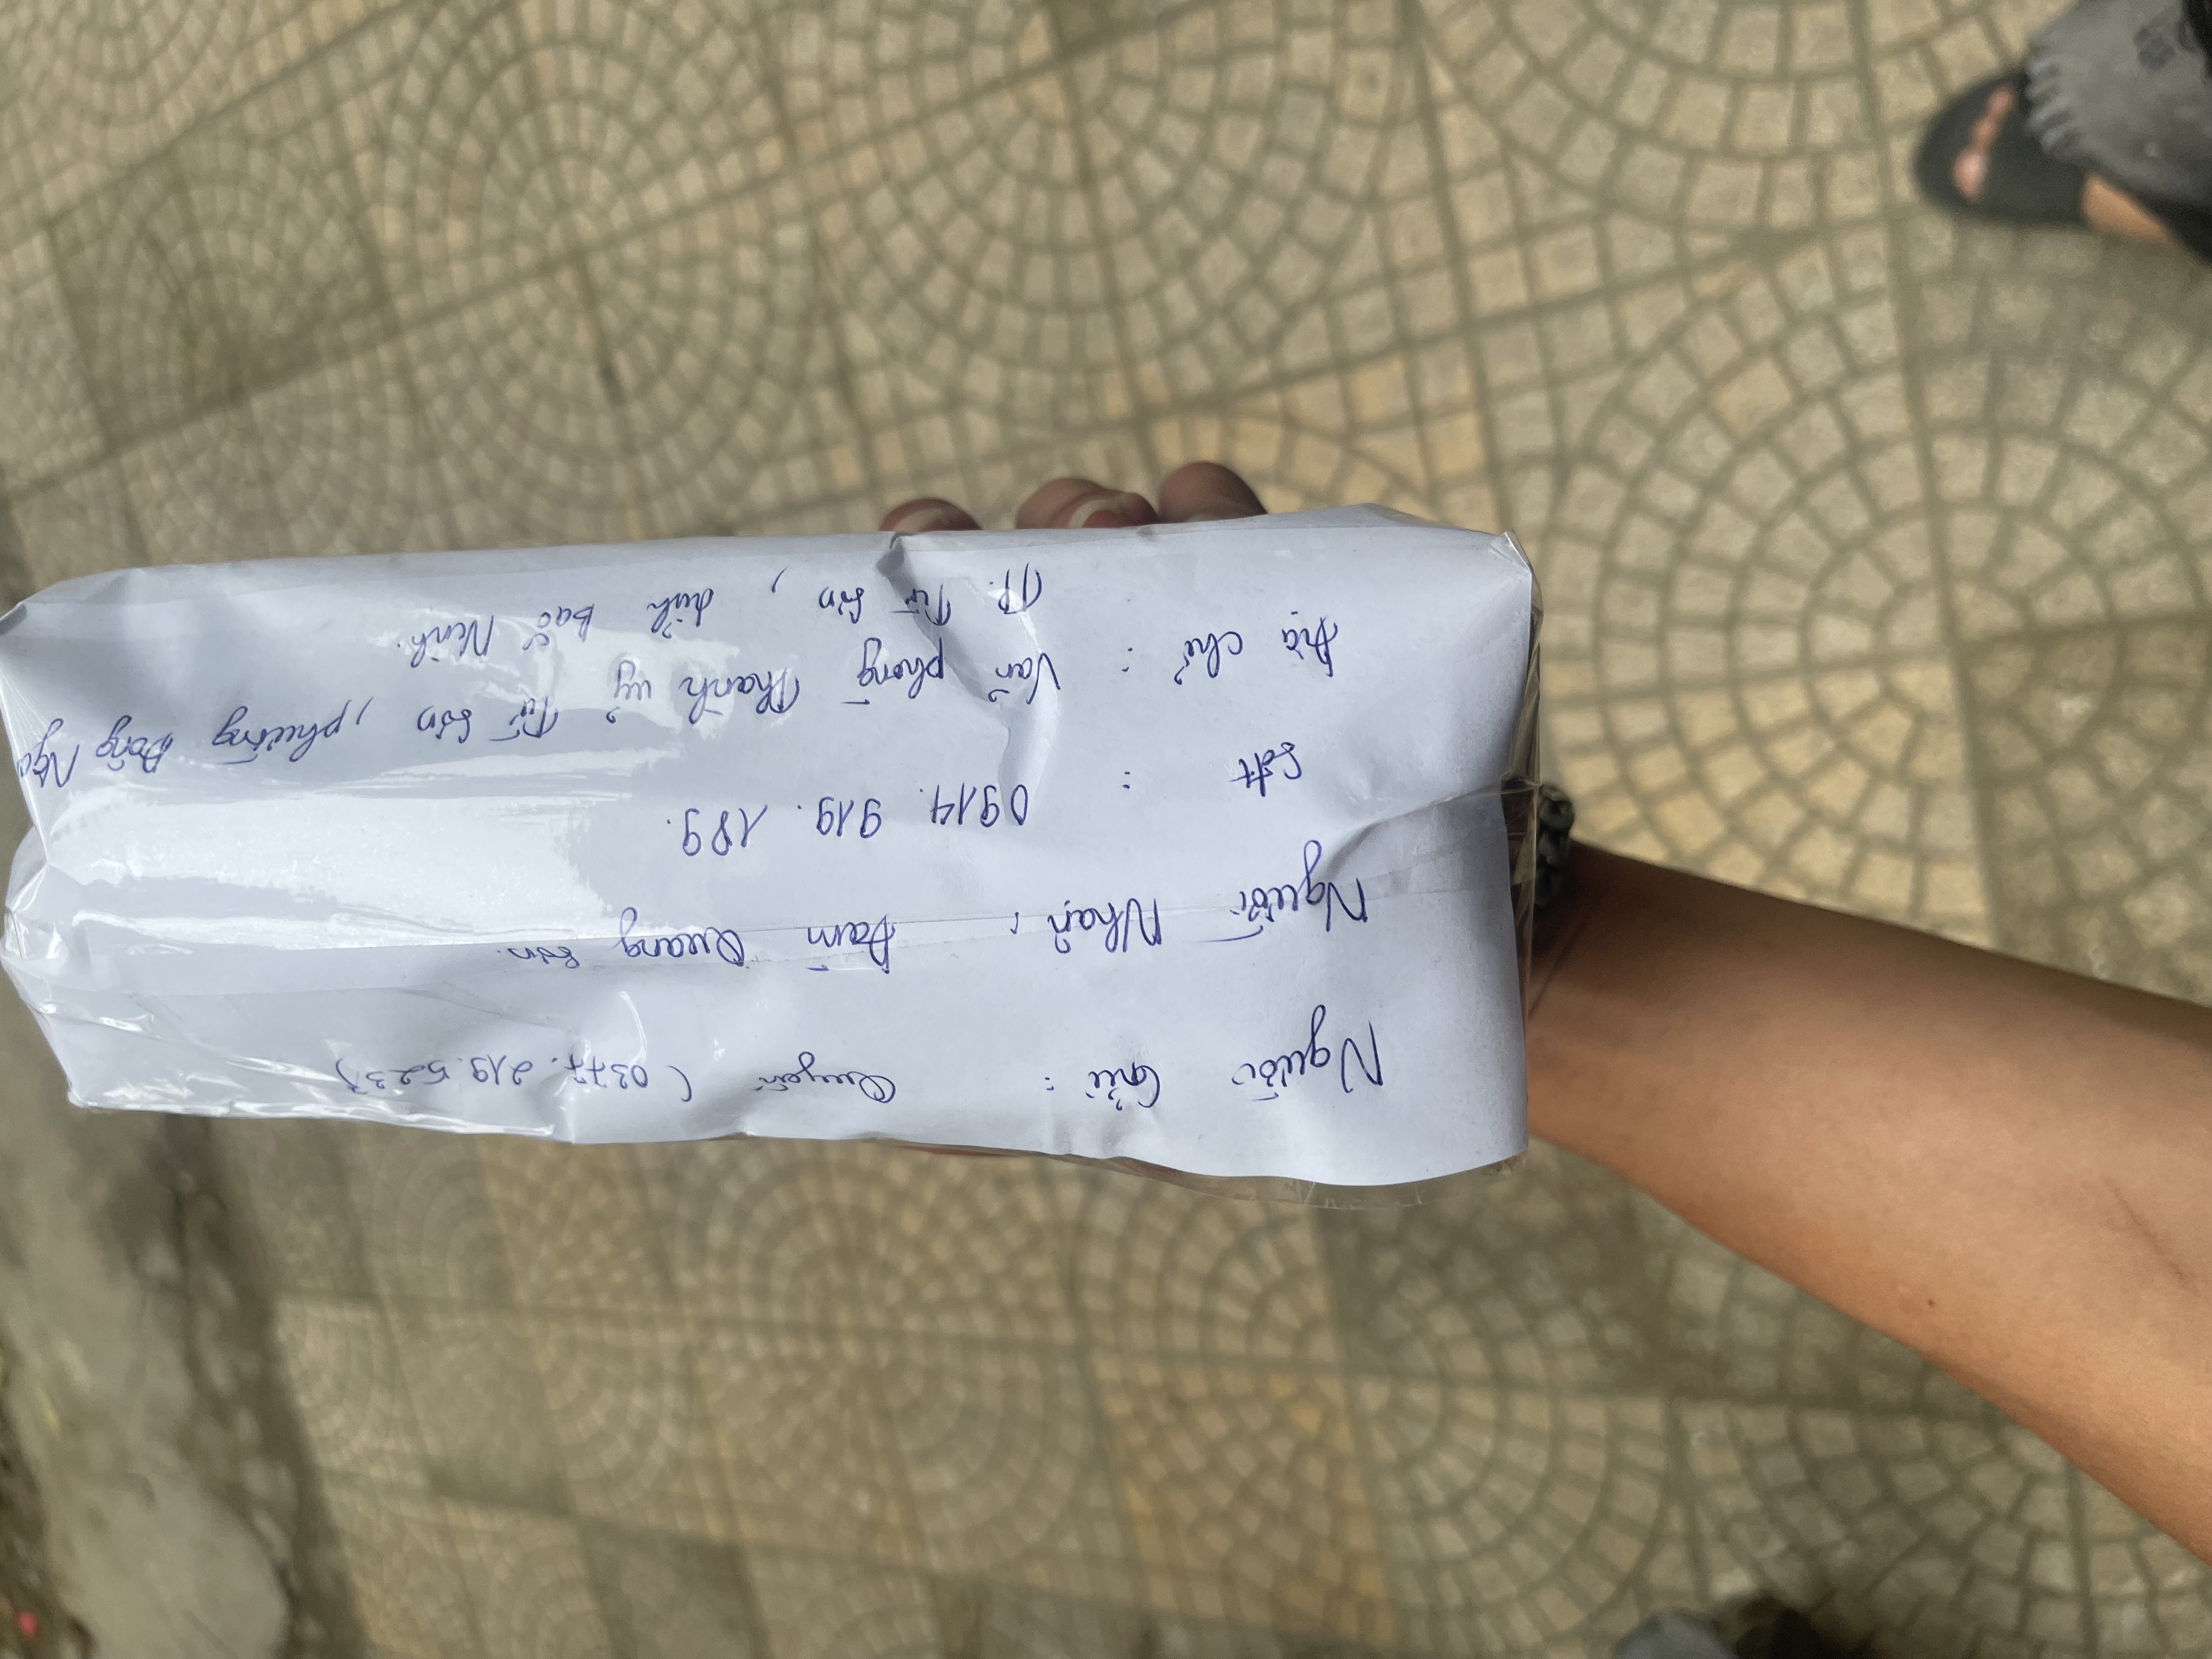 Người Gửi : Quyên (0377.219.523)
Người Nhận : Đàm Quang Sơn.
Sđt : 0914. 919. 189.
Địa chỉ : Văn phòng Thành Vỹ Từ Sơn, phường Đồng Ngu
TP. Từ Sơn, tỉnh Bắc Ninh.